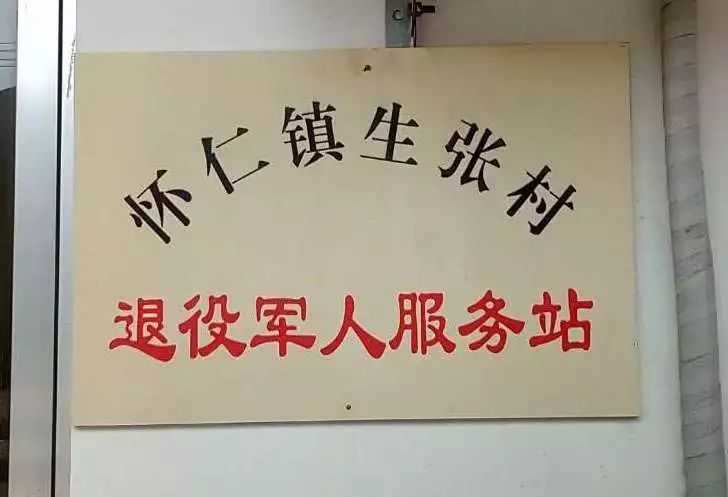 怀仁镇生张村
退役军人服务站